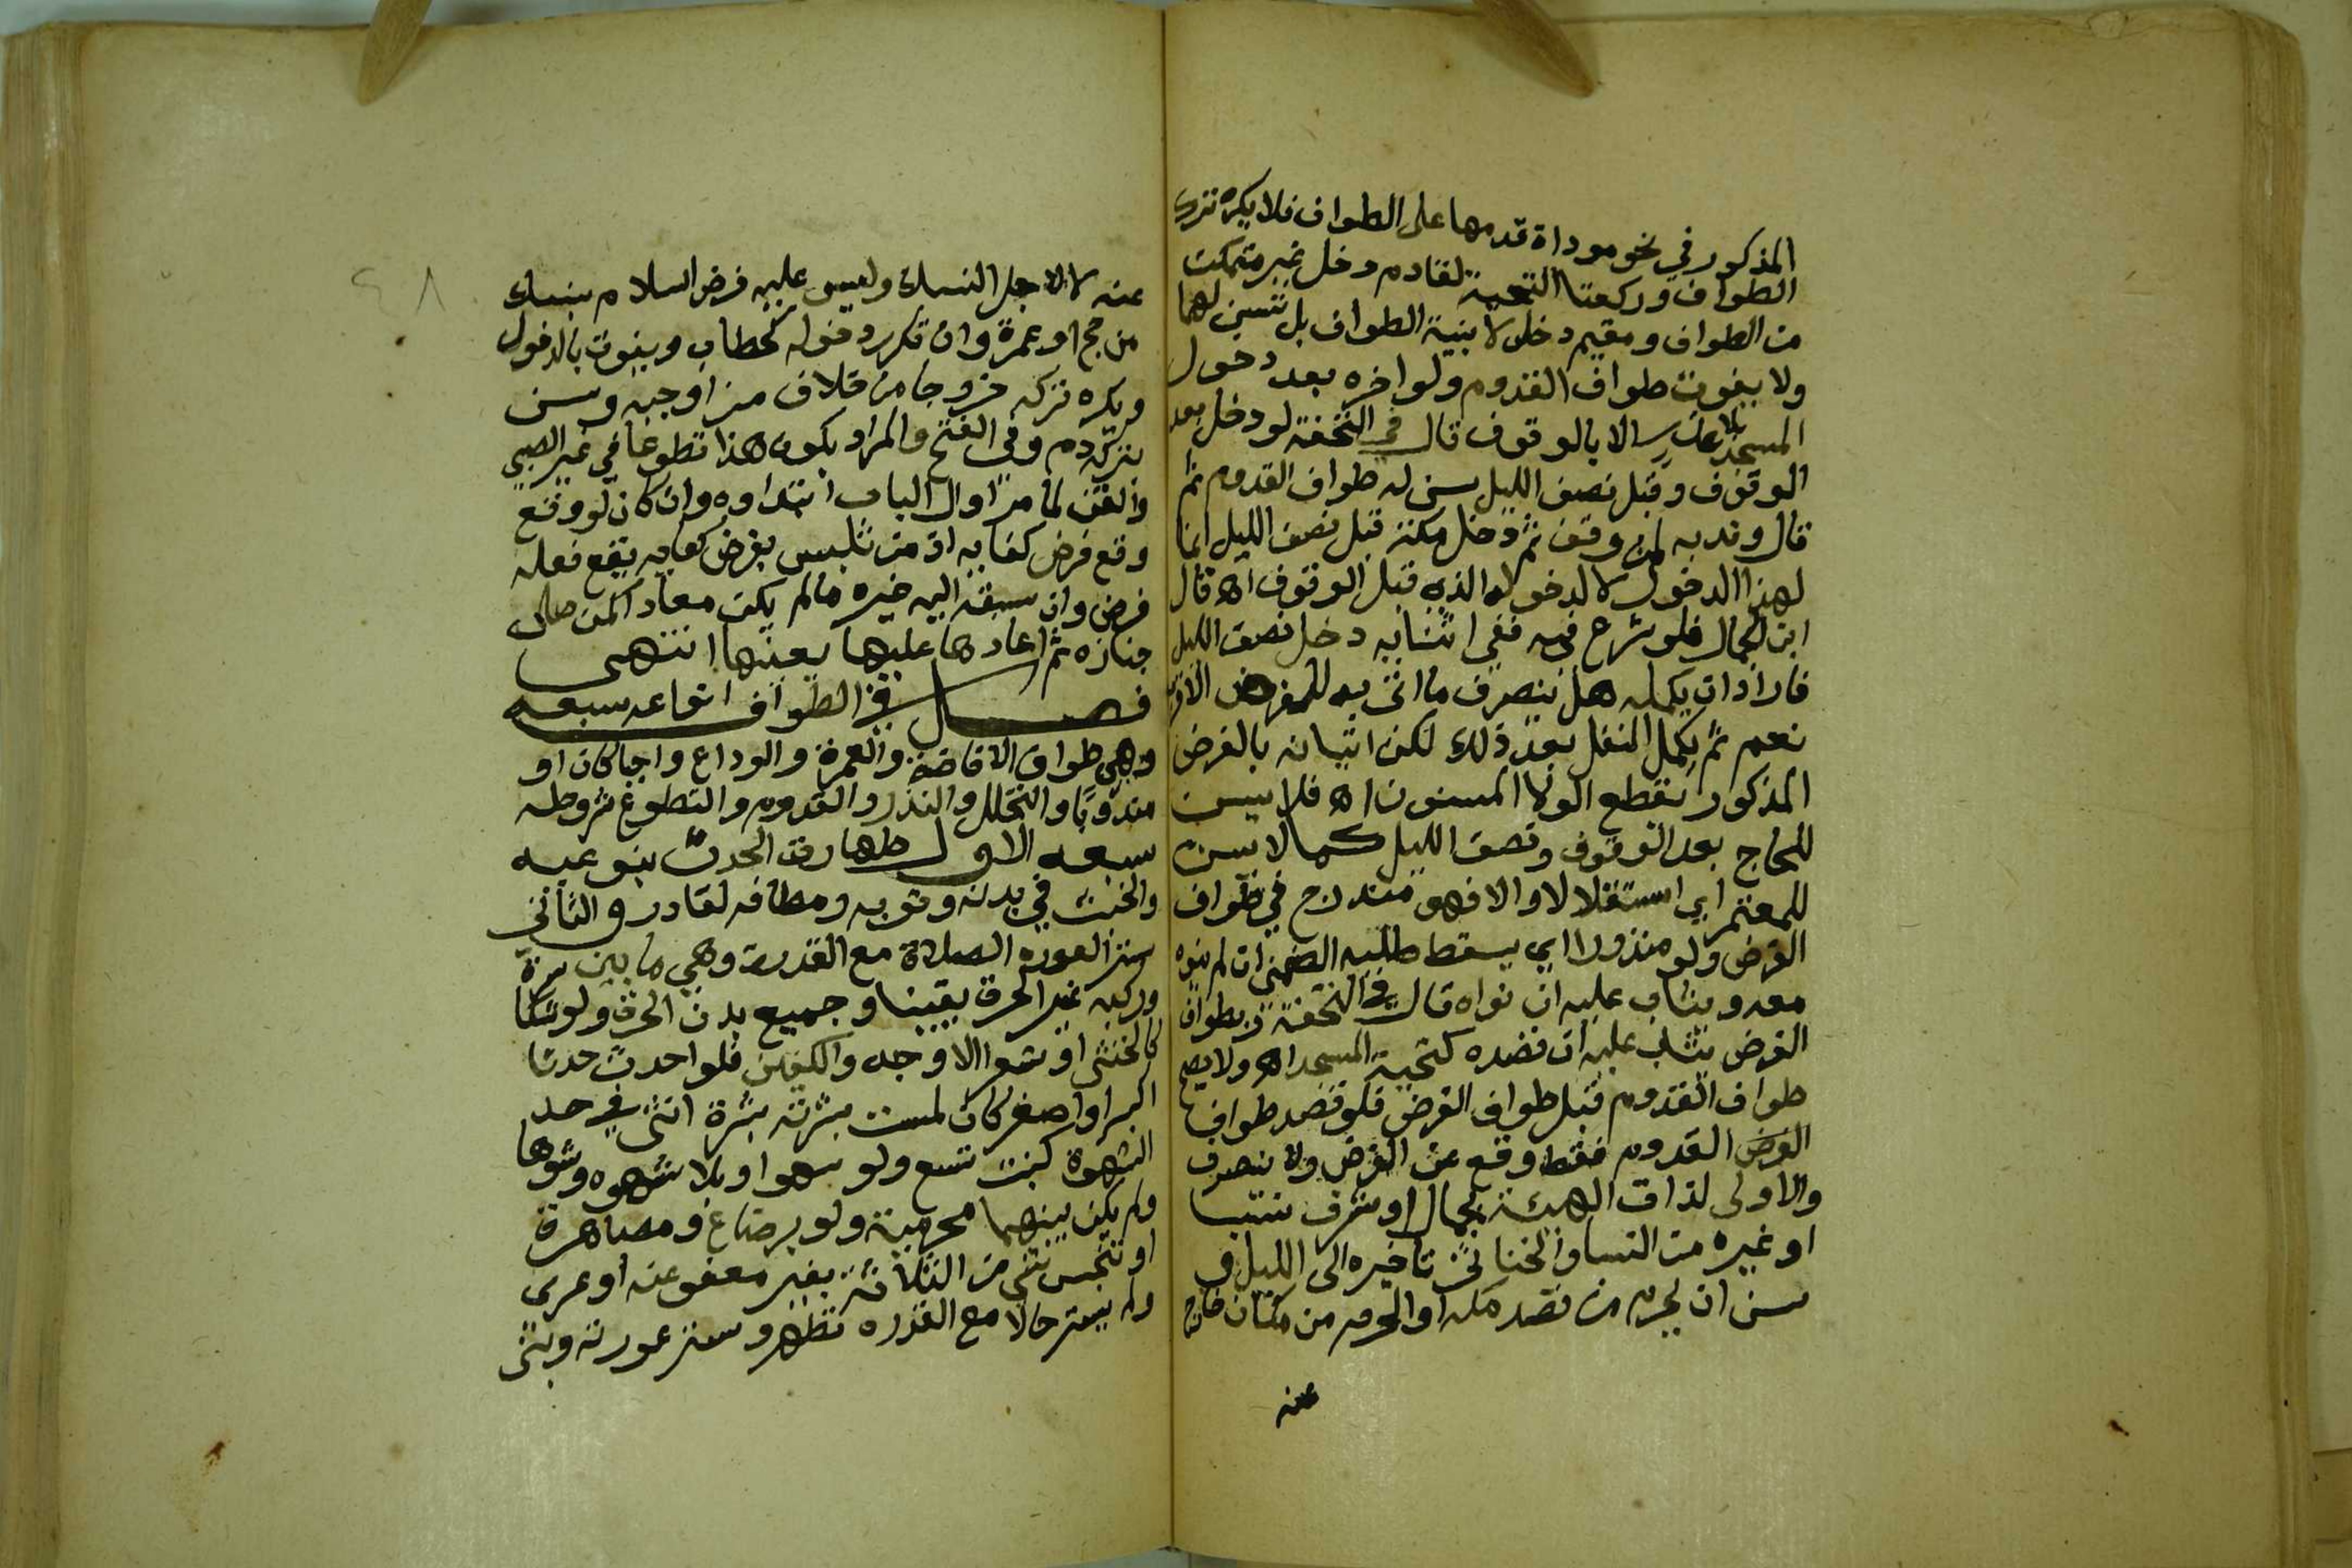 المذكور في نحو موداة قدمها على الطواف فلا يكره ترك
الطواف وركعتا التحية لقادم دخل غير متمكن
من الطواف ومقيم دخل لا بنية الطواف بل تسن لهما
ولا يفوت طواف القدوم ولو اخره بعد دخول
المسجد بلا عذر الا بالوقوف قال في التحفة لو دخل بعد
الوقوف وقبل نصف الليل سن له طواف القدوم ثم
قال وندبه لمن وقف ثم دخل مكة قبل نصف الليل انما
لهذا الدخول لا لدخوله الذي قبل الوقوف اه قال
ابن الجمال فلو شرع فيه ففي اثنايه دخل نصف الليل
فاراد ان يكمله هل ينصرف ما اتى به للفرض الاقرب
نعم ثم يكمل النفل بعد ذلك لكن اتيانه بالفرض
المذكور انقطع الولا المسنون اه فلا يسن
للحاج بعد الوقوف ونصف الليل كما لا يسن
للمعتمر اي استقلالا والا فهو مندرج في طواف
الفرض ولو منذورا اي يسقط طلبه الضمني ان لم ينوه
معه ويثاب عليه ان نواه قال في التحفة وبطواف
الفرض يثاب عليه ان قصده كتحية المسجد اه ولا يصح
طواف القدوم قبل طواف الفرض فلو قصد طواف
الفرض القدوم فقط وقع عن الفرض ولا ينصرف
والاولى لذات الهيئة بجمال او شرف نسبا
او غيره من النسا والخناثى تاخيره الى الليل و
سن ان يحرم من قصد مكة او الحرم من مكان خارج
عنه
٤٨
عنه لا لاجل النسك وليس عليه فرض اسلام بنسك
من حج او عمرة وان تكرر دخوله كحطاب ويفوت بالدخول
ويكره تركه خروجا من خلاف من اوجبه وسن
بتركه دم وفي الفتح والمراد بكون هذا تطوعا في غير الصبي
والقن لما مر اول الباب ابتداوه وان كان لو وقع
وقع فرض كفايه اذ من تلبس بفرض كفايه يقع فعله
فرض وان سبقه اليه غيره ما لم يكن معادا كمن صلى
جنازه ثم اعادها عليها بعينها انتهى
فصل في الطواف انواعه سبعه
وهي طواف الافاضة والعمرة والوداع واجبا كان او
مندوبا والتحلل والنذر والقدوم والتطوع شروطه
سبعه الاول طهارة الحدث بنوعيه
والخبث في بدنه وثوبه ومطافه لقادر والثاني
ستر العوره الصلاة مع القدرة وهي ما بين سرة
وركبه غير الحرة يقينا وجميع بدن الحرة ولو شكا
كالخنثى او شعرا الا وجه والكفين فلو احدث حدثا
اكبر او اصغر كان لمست بشرته بشرة انثى في حد
الشهوة كبنت تسع ولو سهوا وبلا شهوه وشوها
ولم يكن بينهما محرمية ولو برضاع ومصاهرة
او تنجس شي من الثلاثة بغير معفو عنه او عرى
ولم يستر حالا مع القدره تطهر وستر عورته وبنى